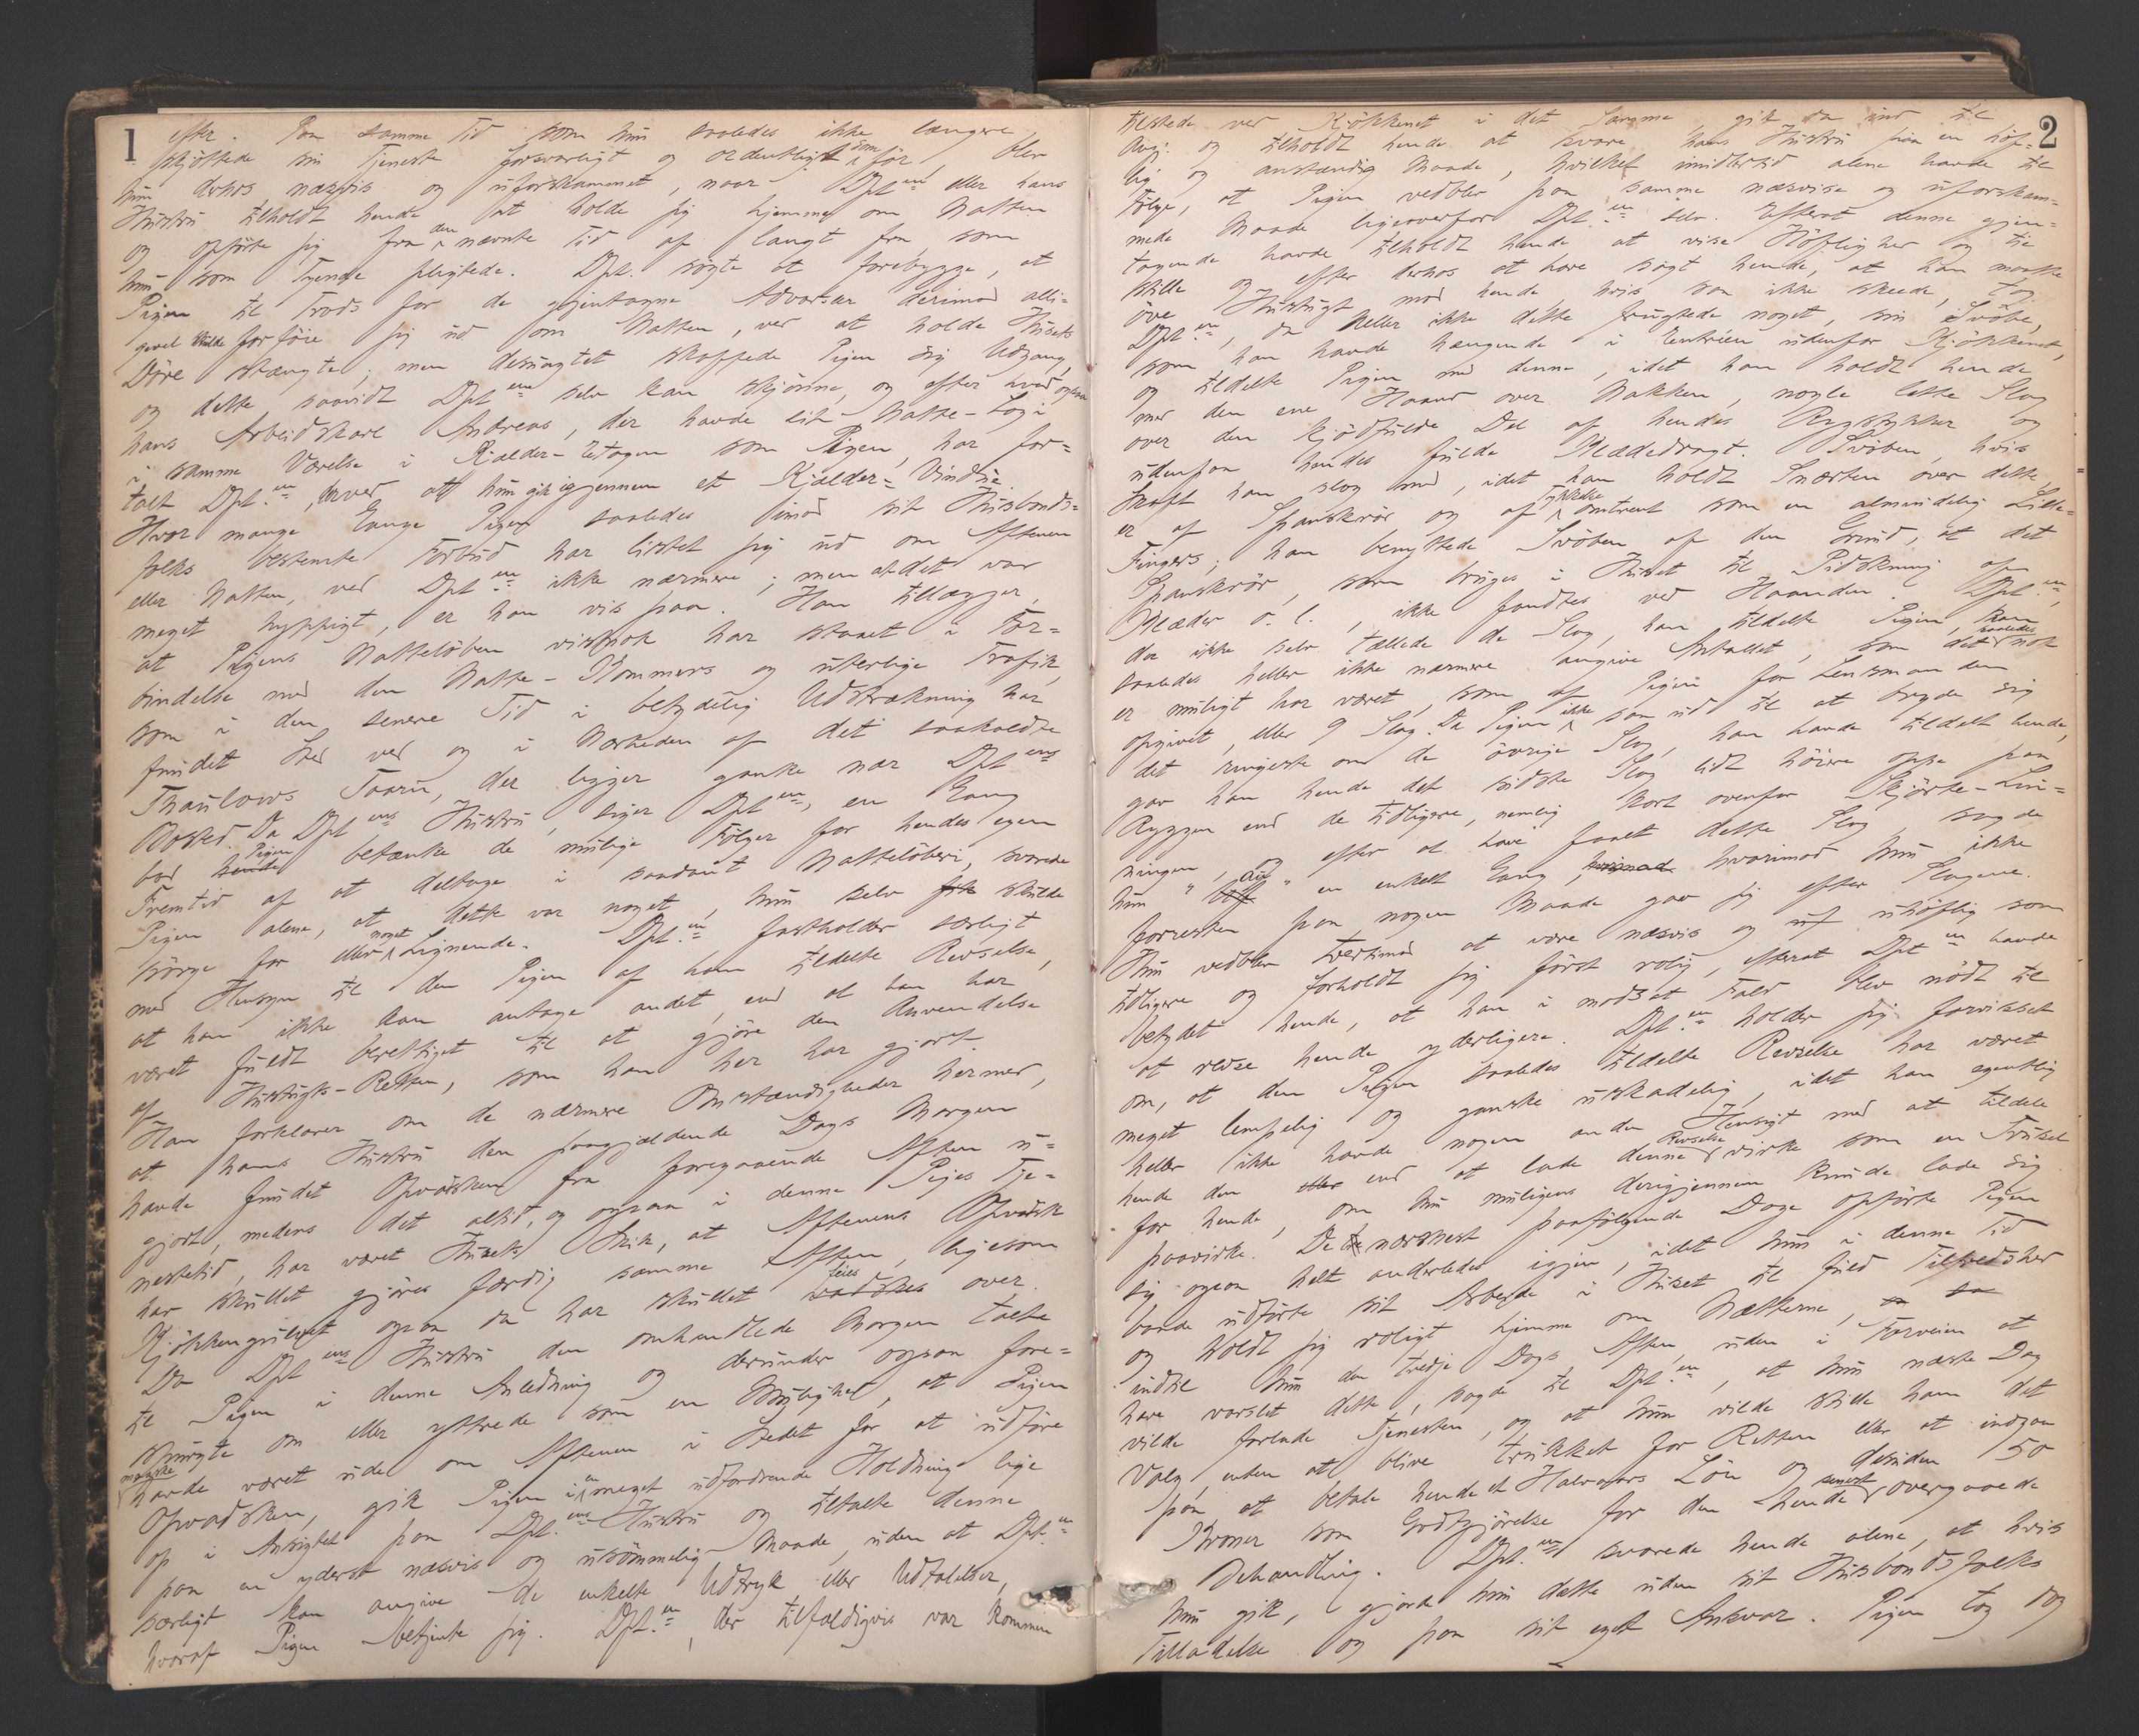 1
efter. Paa samme Tid som hun saaledes ikke længere
skjöttede sin Tjeneste forsvarligt og ordentligt som för, blev
hun derhos næsvis og uforskammet, naar Dpt.en eller hans
Hustru tilholdt hende at holde sig hjemme om Natten
og opförte sig fra den nævnte Tid af langt fra som
hun som Tyende pligtede. Dpt. sögte at forebygge, at
Pigen til Trods for de gjentagne Advarsler derimod alli=
gevel skulde forföie sig ud om Natten, ved at holde Husets
Döre stængte; men desuagtet skaffede Pigen sig Udgang,
og dette, saavidt Dpt.en selv kan skjönne, og efter hvad ogsaa
hans Arbeidskarl Andreas, der havde sit Natte-Logi
i samme Værelse i Kjælder-Etagen som Pigen, har for=
talt Dpt.en, derved at hun gik igjennem et Kjælder=Vindue.
Hvor mange Gange Pigen saaledes imod sit Husbonds=
folks bestemte Forbud har listet sig ud om Aftenen
eller Natten, ved Dpt.en ikke nærmere; men at det var
meget hyppigt, er han vis paa. Han tillægger,
at Pigens Natteløben vistnok har staaet i For=
bindelse med den Natte-Kommers og uterlige Trafik,
som i den senere Tid i betydelig Udstrækning har
fundet Sted ved og i Nærheden af det saakaldte
Thaulows Taarn, der ligger ganske nær Dpt.ens
Bosted. Da Dpt.ens Hustru, siger Dpt.en, en Gang
bad Pigen betænke de mulige Fölger for hendes egen
Fremtid af at deltage i saadant Natteløberi, svarede
Pigen alene, at dette var noget, hun selv fik skulde
sörge for eller noget Lignende. Dpt.en fastholder særligt
med Hensyn til den Pigen af ham tildelte Revselse,
at han ikke kan antage andet, end at han har
været fuldt berettiget til at gjöre den Anvendelse
af Hustugts-Retten, som han her har gjort.
Han forklarer om de nærmere Omstændigheder hermed,
at hans Hustru den paagjældende Dags Morgen
havde fundet Opvasken fra foregaaende Aften u=
gjort, medens det altid, og ogsaa i denne Piges Tje=
nestetid, har været Husets Skik, at Aftenens Opvask
har skullet gjöres færdig samme Aften, ligesom
Kjökkengulvet ogsaa da har skullet feies over.
Da Dpt.ens Hustru den omhandlede Morgen talte
til Pigen i denne Anledning og derunder ogsaa fore=
spurgte om eller yttrede som en Mulighed, at Pigen
maaske havde været ude om Aftenen i Stedet for at udföre
Opvadsken, gik Pigen i en meget udfordrende Holdning lige
op i Ansigtet paa Dpt.ens Hustru og tiltalte denne
paa en yderst næsvis og usömmelig Maade, uden at Dpt.en
særligt kan angive de enkelte Udtryk eller Udtalelser,
hvoraf Pigen betjente sig. Dpt.en, der tilfældigvis var kommen
2
tilstede ved Kjökkenet i det Samme, gik da ind til
Pig. og tilholdt hende at svare hans Hustru paa en höf=
lig og anstændig Maade, hvilket imidlertid alene havde til
Fölge, at Pigen vedblev paa samme næsvise og uforskam=
mede Maade ligeoverfor Dpt.en selv. Efterat denne gjen=
tagende havde tilholdt hende at vise Höflighed og tie
stille og efter derhos at have sagt hende, at han maatte
öve Hustugt mod hende hvis saa ikke skeede, tog
Dpt.en, da heller ikke dette frugtede noget, sin Svöbe,
som han havde hængende i Entréen udenfor Kjökkenet,
og tildelte Pigen med denne, idet han holdt hende
med den ene Haand over Nakken, nogle lette Slag
over den kjödfulde Del af hendes Rygstykker og
udenpaa hendes fulde Klædedragt. Svöben, hvis
Skaft han slog med, idet han holdt Snærten over dette,
er af Spanskrör og af Tykkelse omtrent som en almindelig Lille=
Fingers; han benyttede Svöben af den Grund, at det
Spanskrör, som bruges i Huset til Pidskning af
Klæder o. l., ikke fandtes ved Haanden. Dpt.en,
der ikke selv tællede de Slag, han tildelte Pigen, kan
saaledes heller ikke nærmere angive Antallet, som det saaledes nok
er muligt har været, som af Pigen for Lensmanden
opgivet, eller 9 Slag. Da Pigen ikke saa ud til at bryde sig
det ringeste om de övrige Slag, han havde tildelt hende,
gav han hende det sidste Slag lidt höiere oppe paa
Ryggen end de tidligere, nemlig kort ovenfor Skjörte-Lin=
ningen, og efter at have faaet dette Slag sagde
hun "au" en enkelt Gang, hvorimod hun ikke
forresten paa nogen Maade gav sig efter Slagene.
Hun vedblev tvertimod at være næsvis og uhöflig som
tidligere og forholdt sig först rolig, efterat Dpt.en havde
betydet hende, at han i modsat Fald blev nödt til
at revse hende yderligere. Dpt.en holder sig forvisset
om, at den Pigen saaledes tildelte Revselse har været
meget lempelig og ganske uskadelig, idet han egentlig
heller ikke havde nogen anden Hensigt med at tildele
hende den end at lade denne Revselse virke som en Trusel
for hende, om hun muligens derigjennem kunde lade sig
paavirke. De nærmest paafölgende Dage opförte Pigen
sig ogsaa helt anderledes igjen, idet hun i denne Tid
baade udförte sit Arbejde i Huset til fuld Tilfredshed
og holdt sig roligt hjemme om Nætterne,
indtil hun den tredje Dags Aften, uden i Forveien at
have varslet dette, sagde til Dpt.en, at hun næste Dag
vilde forlade Tjenesten, og at hun vilde stille ham det
Valg, enten at blive trukket for Retten eller at indgaa
paa at betale hende et Halvaars Lön og desuden 150
Kroner som Godtgjörelse for den hende senest overgaaede
Behandling. Dpt.en svarede hende alene, at hvis
hun gik, gjorde hun dette uden sit Husbondsfolks
Tilladelse og paa sit eget Ansvar. Pigen tog dog